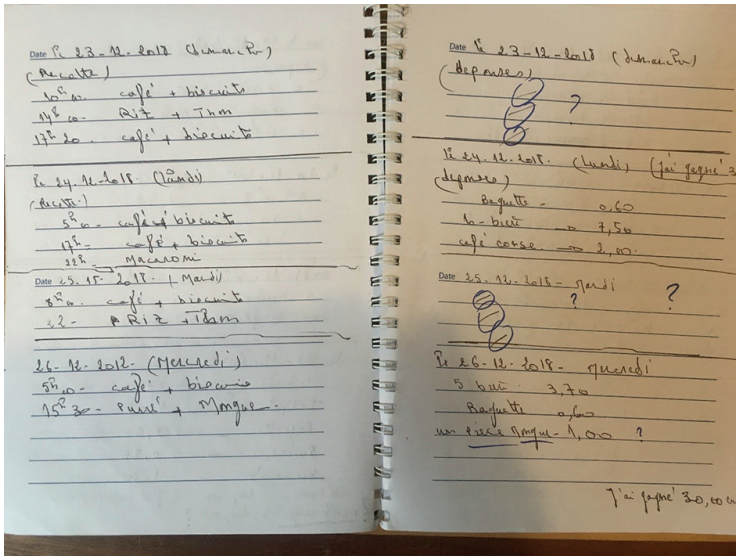 Date le 23-12-2018 (dimanche)
(Recette)
10h00. café + biscuits
14h00 - Riz + Thon
17h20. café + biscuits
le 24.12-2018. (Lundi)
(Recette)
5h00- café + biscuits
17h- café + biscuits
22h- Macaroni
Date 25-12-2018. (Mardi)
8h00- café + biscuits
22- Riz + Thon
26-12-2012- (Mercredi)
5h00- café + biscuits
15h30- Purré + Mongue.
Date le 23-12-2018 (dimanche)
(depenses)
?
le 24-12-2018. (Lundi) (j'ai gagné 3
(depenses)
Baguette - 0,60
10-bière → 7,50
café corse → 2,00.
Date 25-12-2018- Mardi
? ?
le 26-12-2018- Mercredi
5 bière 3,70
Baguette 0,60
un Mongue- 1,00 ?
J'ai gagné 30,00